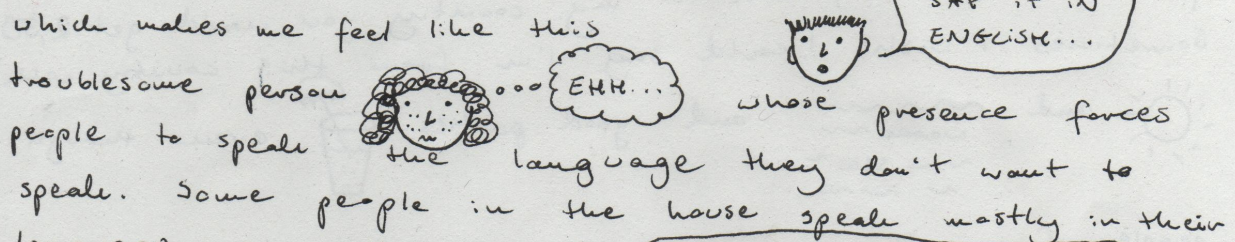 which makes me feel like this
IT IN
ENGLISH...
troublesome person
EHH...
whose presence forces
people to speak the language they don't want to
speak. Some people in the house speak mostly in their